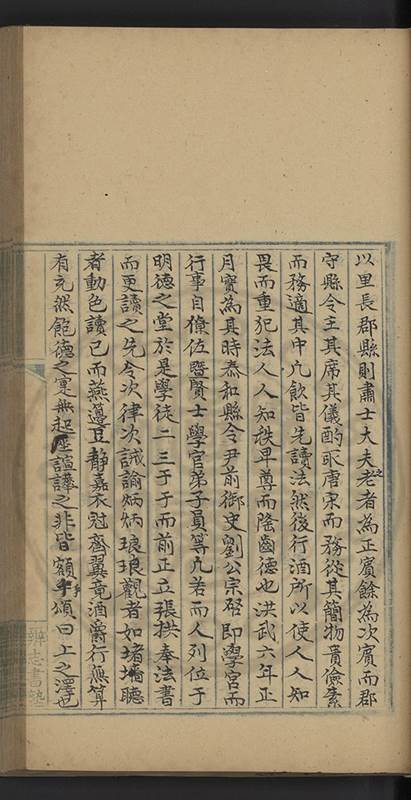 以里長郡縣則肅士大夫之老者為正賓餘為次賓而郡
守縣令主其席其儀酌取唐宋而務從其簡物貴儉素
而務適其中凢飲皆先讀法然後行酒所以使人人知
畏而重犯法人人知秩卑尊而陰齒德也洪武六年正
月實為其時泰和縣令尹前御史劉公宗啓即學宮而
行事自僚位暨賢士學官弟子員等凢若而人列位于
明德之堂於是學徒二三子于而前正立張拱奉法書
而更讀之先令次律次誡諭炳炳琅琅觀者如堵墻聽
者動色讀已而燕籩豆靜嘉衣冠齊翼竟酒爵行無算
有充然飽德之寔無起座諠譁之非皆額手頌曰上之澤也
辨志書塾